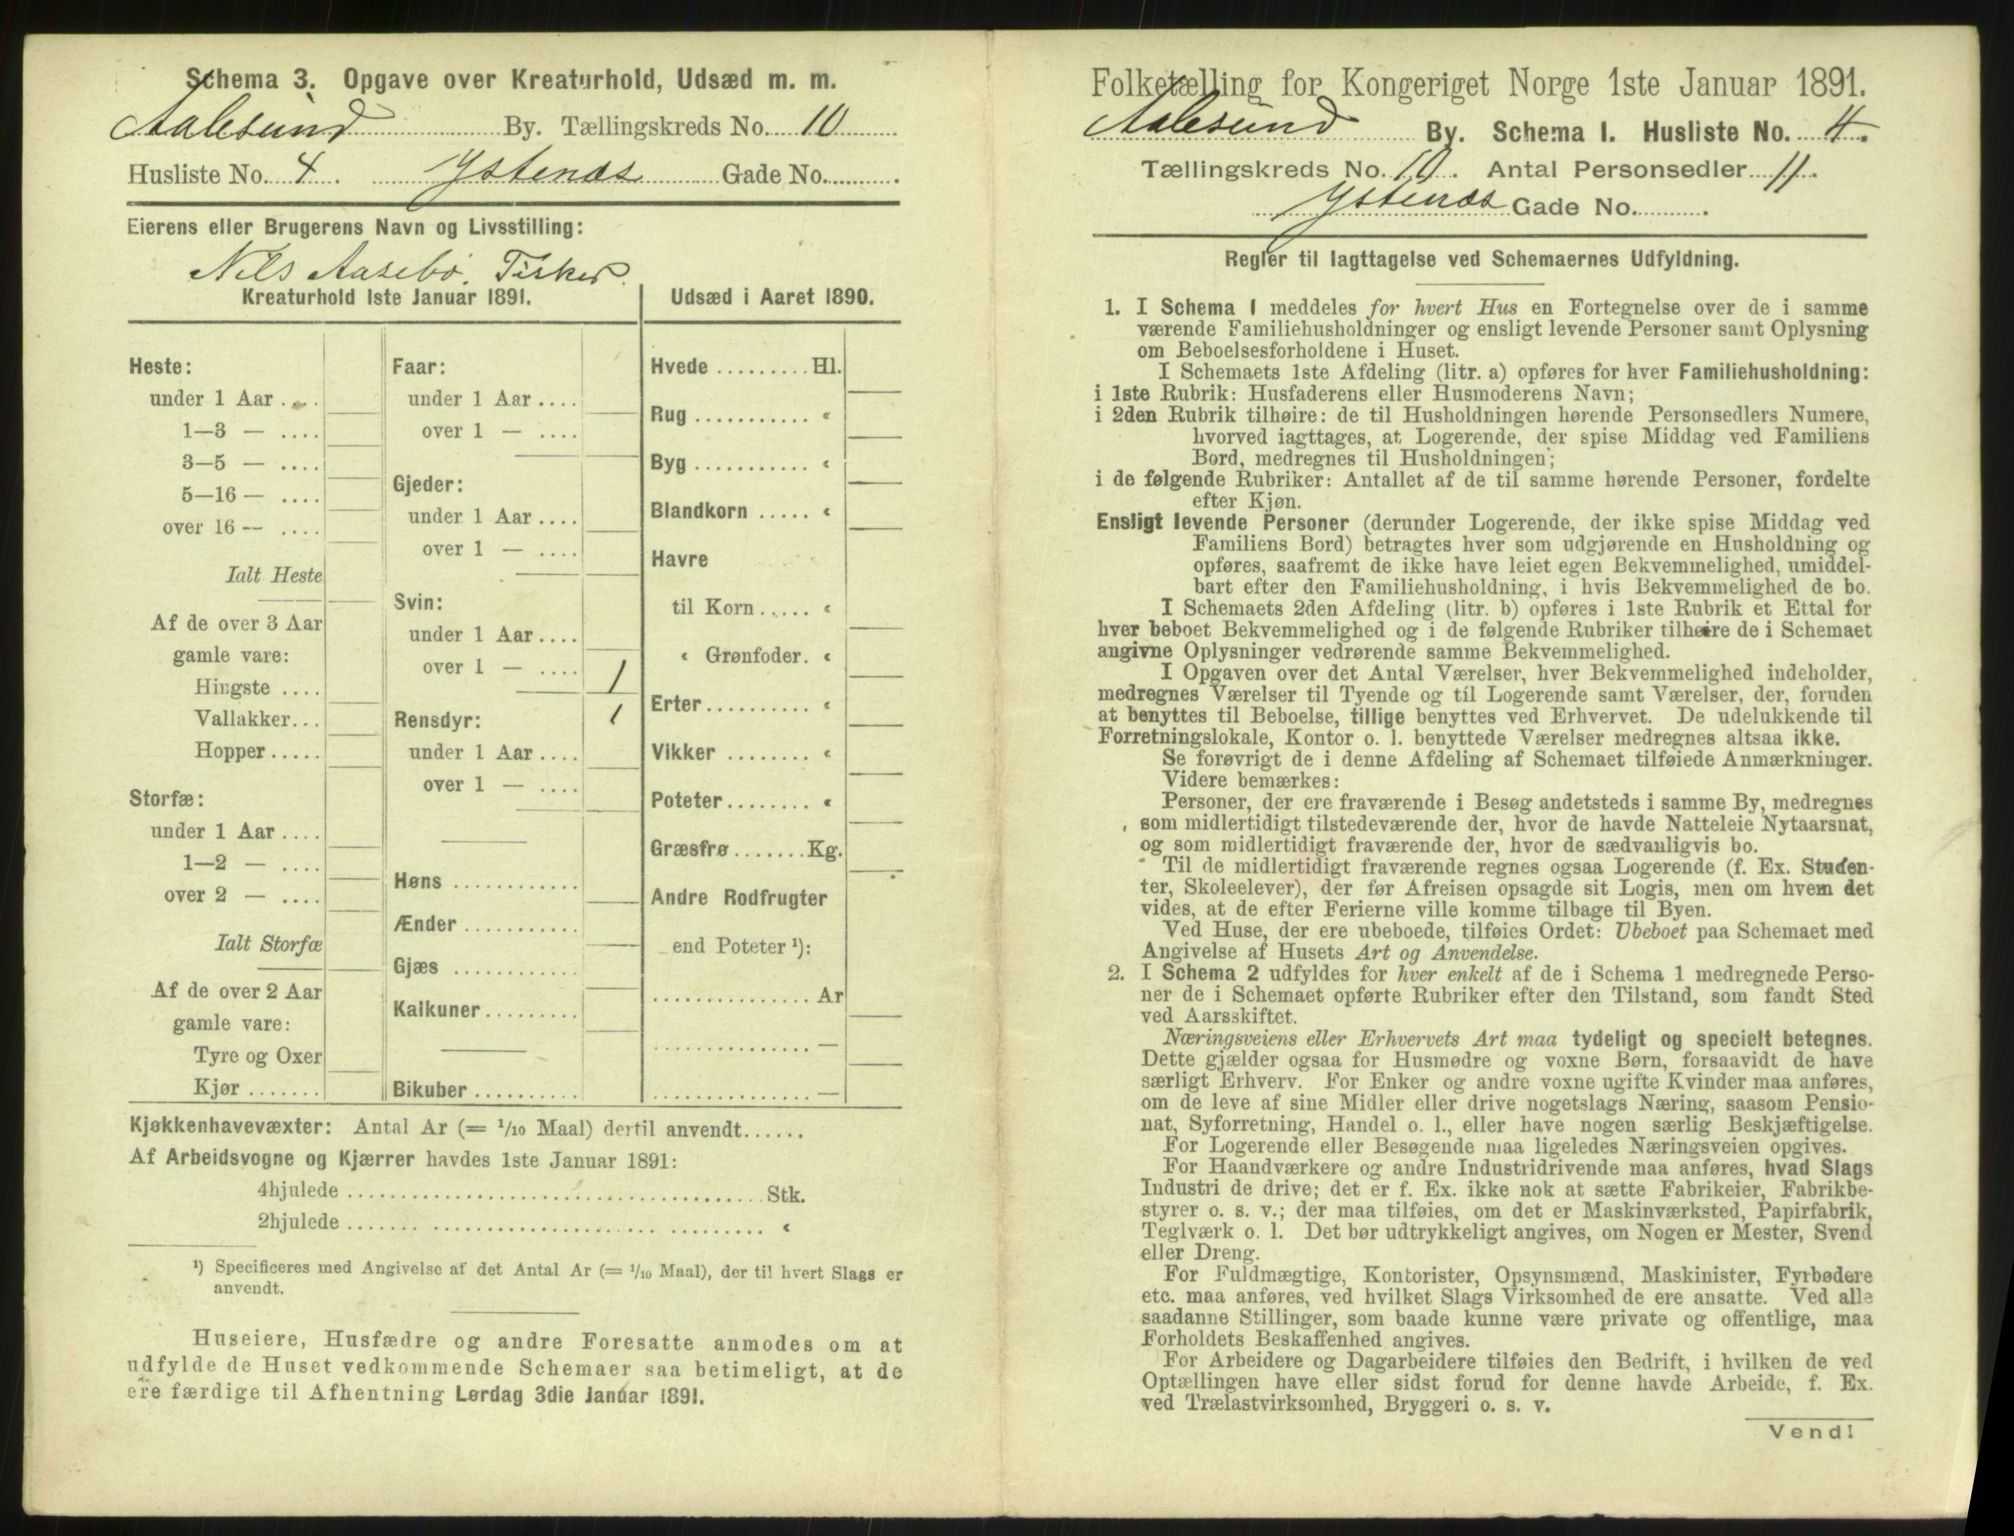 Schema 3. Opgave over Kreaturhold, Udsæd m. m.
Aalesund By. Tællingskreds No. 10
Husliste No. 4. Ystenæs Gade No.
Eierens eller Brugerens Navn og Livsstilling:
Nils Aasebø. Fisker.
Kreaturhold 1ste Januar 1891.
Heste:
under 1 Aar ....
1—3 — ....
3—5 — ....
5—16 — ....
over 16 — ....
Ialt Heste
Af de over 3 Aar
gamle vare:
Hingste ....
Vallakker...
Hopper .....
Storfæ:
under 1 Aar ....
1—2 — ....
over 2 — ....
Ialt Storfæ
Af de over 2 Aar
gamle vare:
Tyre og Oxer
Kjør .......
Faar:
under 1 Aar ....
over 1 — ....
Gjeder:
under 1 Aar ....
over 1 — ....
Svin:
under 1 Aar ....
over 1 — .... 1
1
Rensdyr:
under 1 Aar ....
over 1 — ....
Høns ............
Ænder ...........
Gjæs ............
Kalkuner .........
Bikuber ..........
Udsæd i Aaret 1890.
Hvede ......... Hl.
Rug ........... «
Byg ........... «
Blandkorn ..... «
Havre
til Korn ..... «
« Grønfoder. «
Erter .......... «
Vikker ........ «
Poteter ........ «
Græsfrø ....... Kg.
Andre Rodfrugter
end Poteter ¹):
............... Ar
............... —
............... —
Kjøkkenhavevæxter: Antal Ar (= 1/10 Maal) dertil anvendt......
Af Arbeidsvogne og Kjærrer havdes 1ste Januar 1891:
4hjulede ........................................ Stk.
2hjulede ........................................ «
¹) Specificeres med Angivelse af det Antal Ar (= 1/10 Maal), der til hvert Slags er
anvendt.
Huseiere, Husfædre og andre Foresatte anmodes om at
udfylde de Huset vedkommende Schemaer saa betimeligt, at de
ere færdige til Afhentning Lørdag 3die Januar 1891.
Folketælling for Kongeriget Norge 1ste Januar 1891.
Aalesund By. Schema 1. Husliste No. 4.
Tællingskreds No. 10. Antal Personsedler 11.
Ystenæs Gade No. .
Regler til Iagttagelse ved Schemaernes Udfyldning.
1. I Schema 1 meddeles for hvert Hus en Fortegnelse over de i samme
værende Familiehusholdninger og ensligt levende Personer samt Oplysning
om Beboelsesforholdene i Huset.
I Schemaets 1ste Afdeling (litr. a) opføres for hver Familiehusholdning:
i 1ste Rubrik: Husfaderens eller Husmoderens Navn;
i 2den Rubrik tilhøire: de til Husholdningen hørende Personsedlers Numere,
hvorved iagttages, at Logerende, der spise Middag ved Familiens
Bord, medregnes til Husholdningen;
i de følgende Rubriker: Antallet af de til samme hørende Personer, fordelte
efter Kjøn.
Ensligt levende Personer (derunder Logerende, der ikke spise Middag ved
Familiens Bord) betragtes hver som udgjørende en Husholdning og
opføres, saafremt de ikke have leiet egen Bekvemmelighed, umiddel-
bart efter den Familiehusholdning, i hvis Bekvemmelighed de bo.
I Schemaets 2den Afdeling (litr. b) opføres i 1ste Rubrik et Ettal for
hver beboet Bekvemmelighed og i de følgende Rubriker tilhøire de i Schemaet
angivne Oplysninger vedrørende samme Bekvemmelighed.
I Opgaven over det Antal Værelser, hver Bekvemmelighed indeholder,
medregnes Værelser til Tyende og til Logerende samt Værelser, der, foruden
at benyttes til Beboelse, tillige benyttes ved Erhvervet. De udelukkende til
Forretningslokale, Kontor o. l. benyttede Værelser medregnes altsaa ikke.
Se forøvrigt de i denne Afdeling af Schemaet tilføiede Anmærkninger.
Videre bemærkes:
Personer, der ere fraværende i Besøg andetsteds i samme By, medregnes
som midlertidigt tilstedeværende der, hvor de havde Natteleie Nytaarsnat,
og som midlertidigt fraværende der, hvor de sædvanligvis bo.
Til de midlertidigt fraværende regnes ogsaa Logerende (f. Ex. Studen-
ter, Skoleelever), der før Afreisen opsagde sit Logis, men om hvem det
vides, at de efter Ferierne ville komme tilbage til Byen.
Ved Huse, der ere ubeboede, tilføies Ordet: Ubeboet paa Schemaet med
Angivelse af Husets Art og Anvendelse.
2. I Schema 2 udfyldes for hver enkelt af de i Schema 1 medregnede Perso-
ner de i Schemaet opførte Rubriker efter den Tilstand, som fandt Sted
ved Aarsskiftet.
Næringsveiens eller Erhvervets Art maa tydeligt og specielt betegnes.
Dette gjælder ogsaa for Husmødre og voxne Børn, forsaavidt de have
særligt Erhverv. For Enker og andre voxne ugifte Kvinder maa anføres,
om de leve af sine Midler eller drive nogetslags Næring, saasom Pensio-
nat, Syforretning, Handel o. l., eller have nogen særlig Beskjæftigelse.
For Logerende eller Besøgende maa ligeledes Næringsveien opgives.
For Haandværkere og andre Industridrivende maa anføres, hvad Slags
Industri de drive; det er f. Ex. ikke nok at sætte Fabrikeier, Fabrikbe-
styrer o. s. v.; der maa tilføies, om det er Maskinværksted, Papirfabrik,
Teglværk o. l. Det bør udtrykkeligt angives, om Nogen er Mester, Svend
eller Dreng.
For Fuldmægtige, Kontorister, Opsynsmænd, Maskinister, Fyrbødere
etc. maa anføres, ved hvilket Slags Virksomhed de ere ansatte. Ved alle
saadanne Stillinger, som baade kunne være private og offentlige, maa
Forholdets Beskaffenhed angives.
For Arbeidere og Dagarbeidere tilføies den Bedrift, i hvilken de ved
Optællingen have eller sidst forud for denne havde Arbeide, f. Ex.
ved Trælastvirksomhed, Bryggeri o. s. v.
Vend!